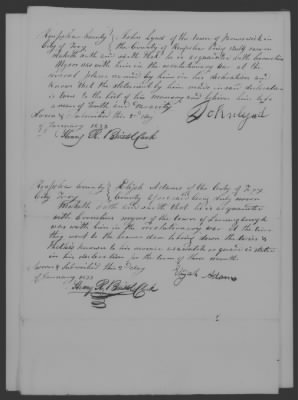 Rensselaer County } John Lyud of the town of Brunswick in
City of Troy } the County of Rensselaer being duly sworn
deposeth and saith that he is acquainted with Cornelius
Myers was with him in the revolutionary war at the
several places named by him in his declaration and
knows that the statement by him made in said declaration
is true to the best of his memory and believes him to be
a man of truth and veracity
Sworn & Subscribed this 2d day
of January 1833
Henry R. Bristol Clerk
Rensselaer County } Elijah Adams of the City of Troy
City Troy } County aforesaid being duly sworn
deposeth and saith that he is acquainted
with Cornelius Myers of the town of Lansingburgh
was with him in the revolutionary war at the time
they went to the
in his declaration for the term of three months
Sworn & Subscribed this 2d day
of January 1833
Elijah Adams
Henry R. Bristol Clk